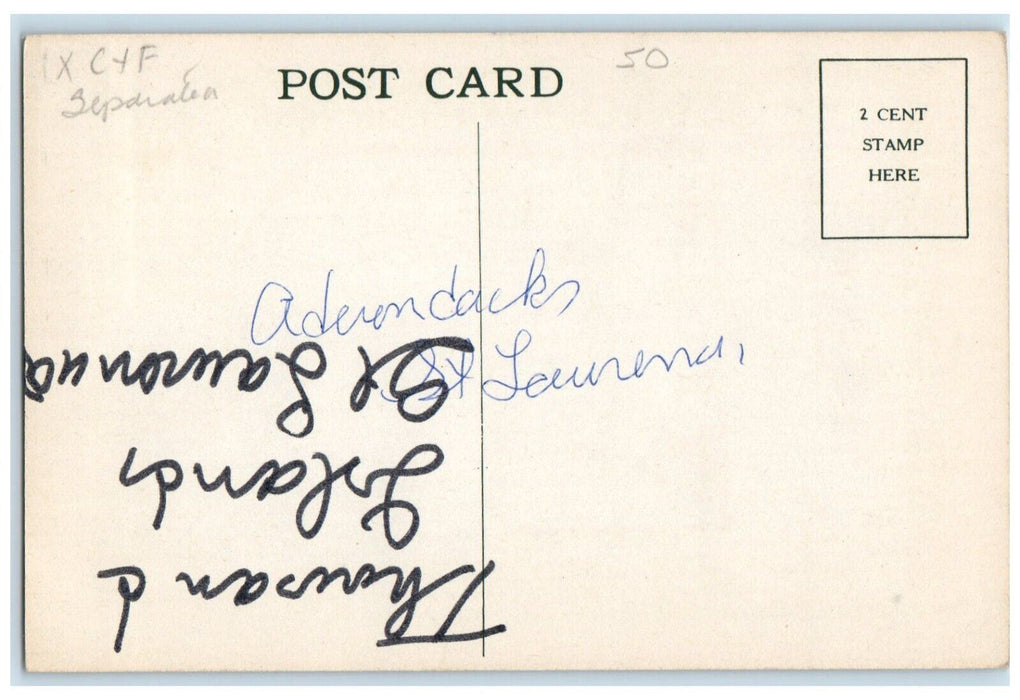 1X C+F
Separated
POST CARD
50
2 CENT
STAMP
HERE
Aderondacks
St Lawrence,
Thousand
Islands
St Lawrence